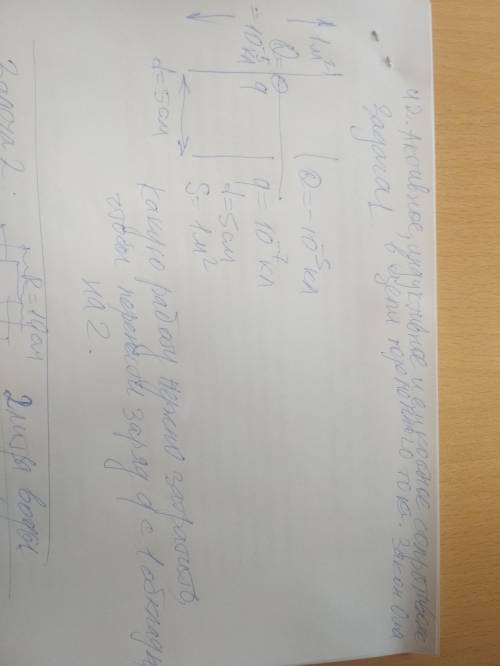 42. Активное, индуктивное и емкостное сопротивление
в цепи переменного тока. Закон Ома
Задача 1
1 м²
Q=
= 10⁻⁵ кл
Q = -10⁻⁵ кл
q
q = 10⁻⁷ кл
d = 5 см
S = 1 м²
d = 5 см
Какую работу нужно
чтобы перенести заряд q с 1 обкладки
на 2.
Задача 2.
R =
2 литра воды